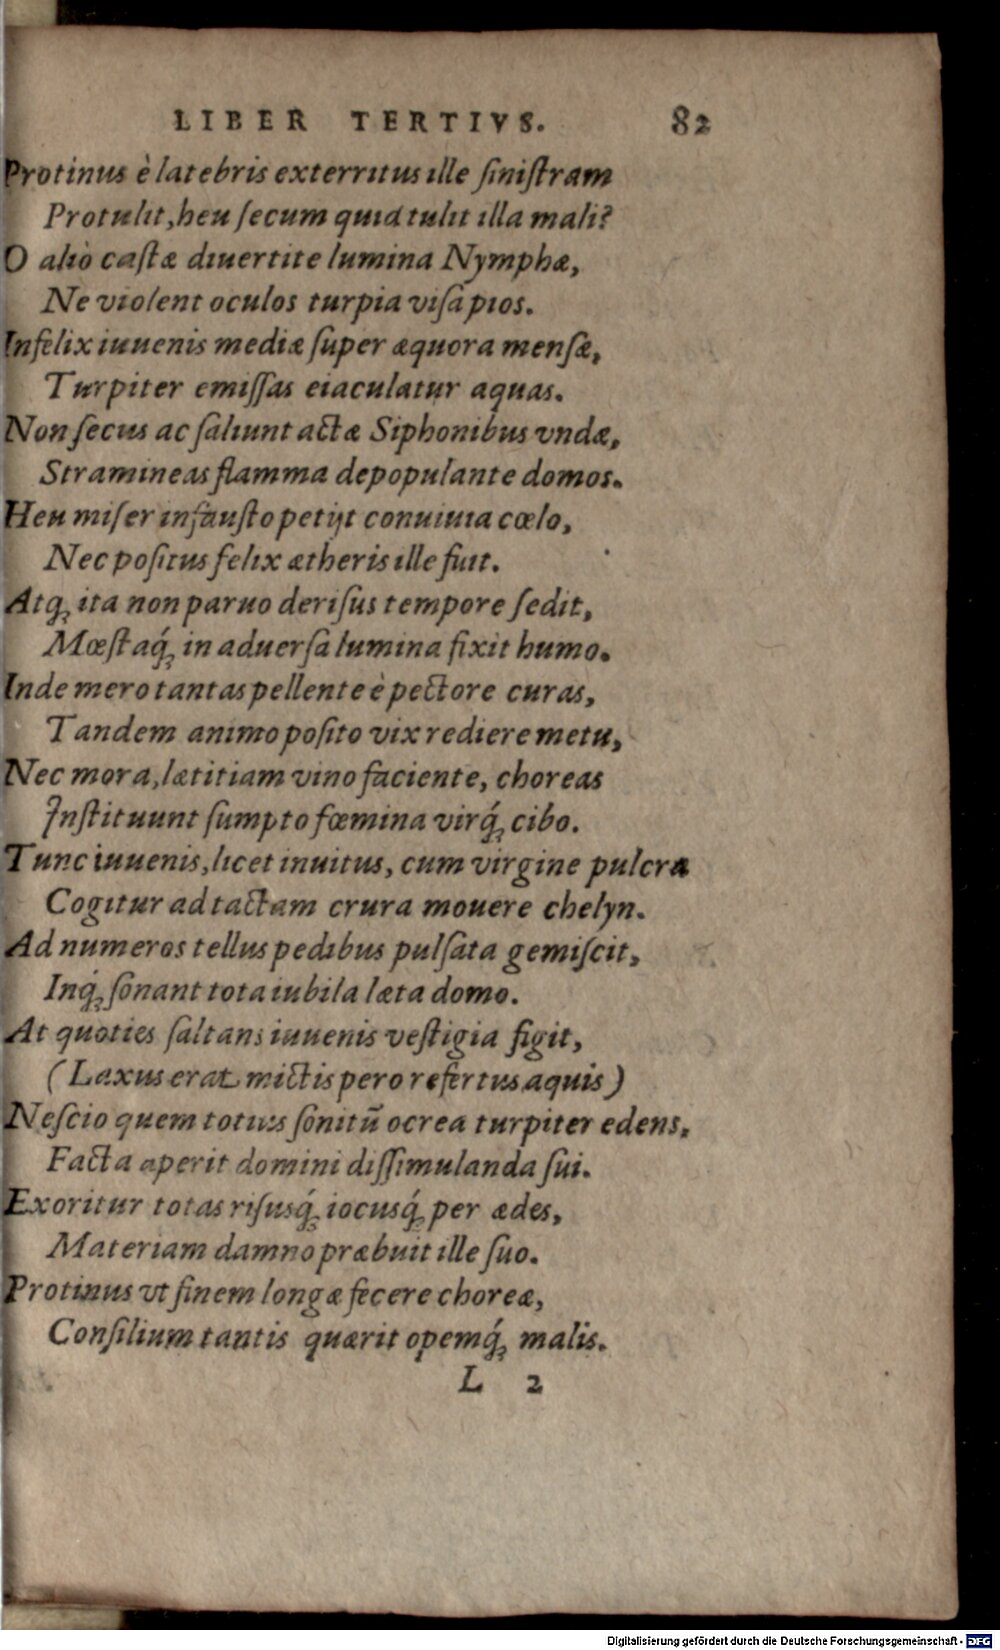 LIBER TERTIVS. 82
Protinus è latebris exterritus ille ſiniſtram
Protulit, heu ſecum quid tulit illa mali?
O aliò caſtæ diuertite lumina Nymphæ,
Ne violent oculos turpia viſa pios.
Infelix iuuenis mediæ ſuper æquora menſæ,
Turpiter emiſſas eiaculatur aquas.
Non ſecus ac ſaliunt actæ Siphonibus vndæ,
Stramineas flamma depopulante domos.
Heu miſer infauſto petijt conuiuia cœlo,
Nec poſitus felix ætheris ille fuit.
Atq́; ita non paruo deriſus tempore ſedit,
Mœſtaq́; in aduerſa lumina fixit humo.
Inde mero tantas pellente è pectore curas,
Tandem animo poſito vix rediere metu,
Nec mora, lætitiam vino faciente, choreas
Inſtituunt ſumpto fœmina virq́; cibo.
Tunc iuuenis, licet inuitus, cum virgine pulcra
Cogitur ad tactam crura mouere chelyn.
Ad numeros tellus pedibus pulſata gemiſcit,
Inq́; ſonant tota iubila læta domo.
At quoties ſaltans iuuenis veſtigia figit,
(Laxus erat mictis pero refertus aquis)
Neſcio quem toties ſonitū ocrea turpiter edens,
Facta aperit domini diſſimulanda ſui.
Exoritur totas riſusq́; iocusq́; per ædes,
Materiam damno præbuit ille ſuo.
Protinus vt finem longæ fecere choreæ,
Conſilium tantis quærit opemq́; malis.
L 2
Digitalisierung gefördert durch die Deutsche Forschungsgemeinschaft - DFG